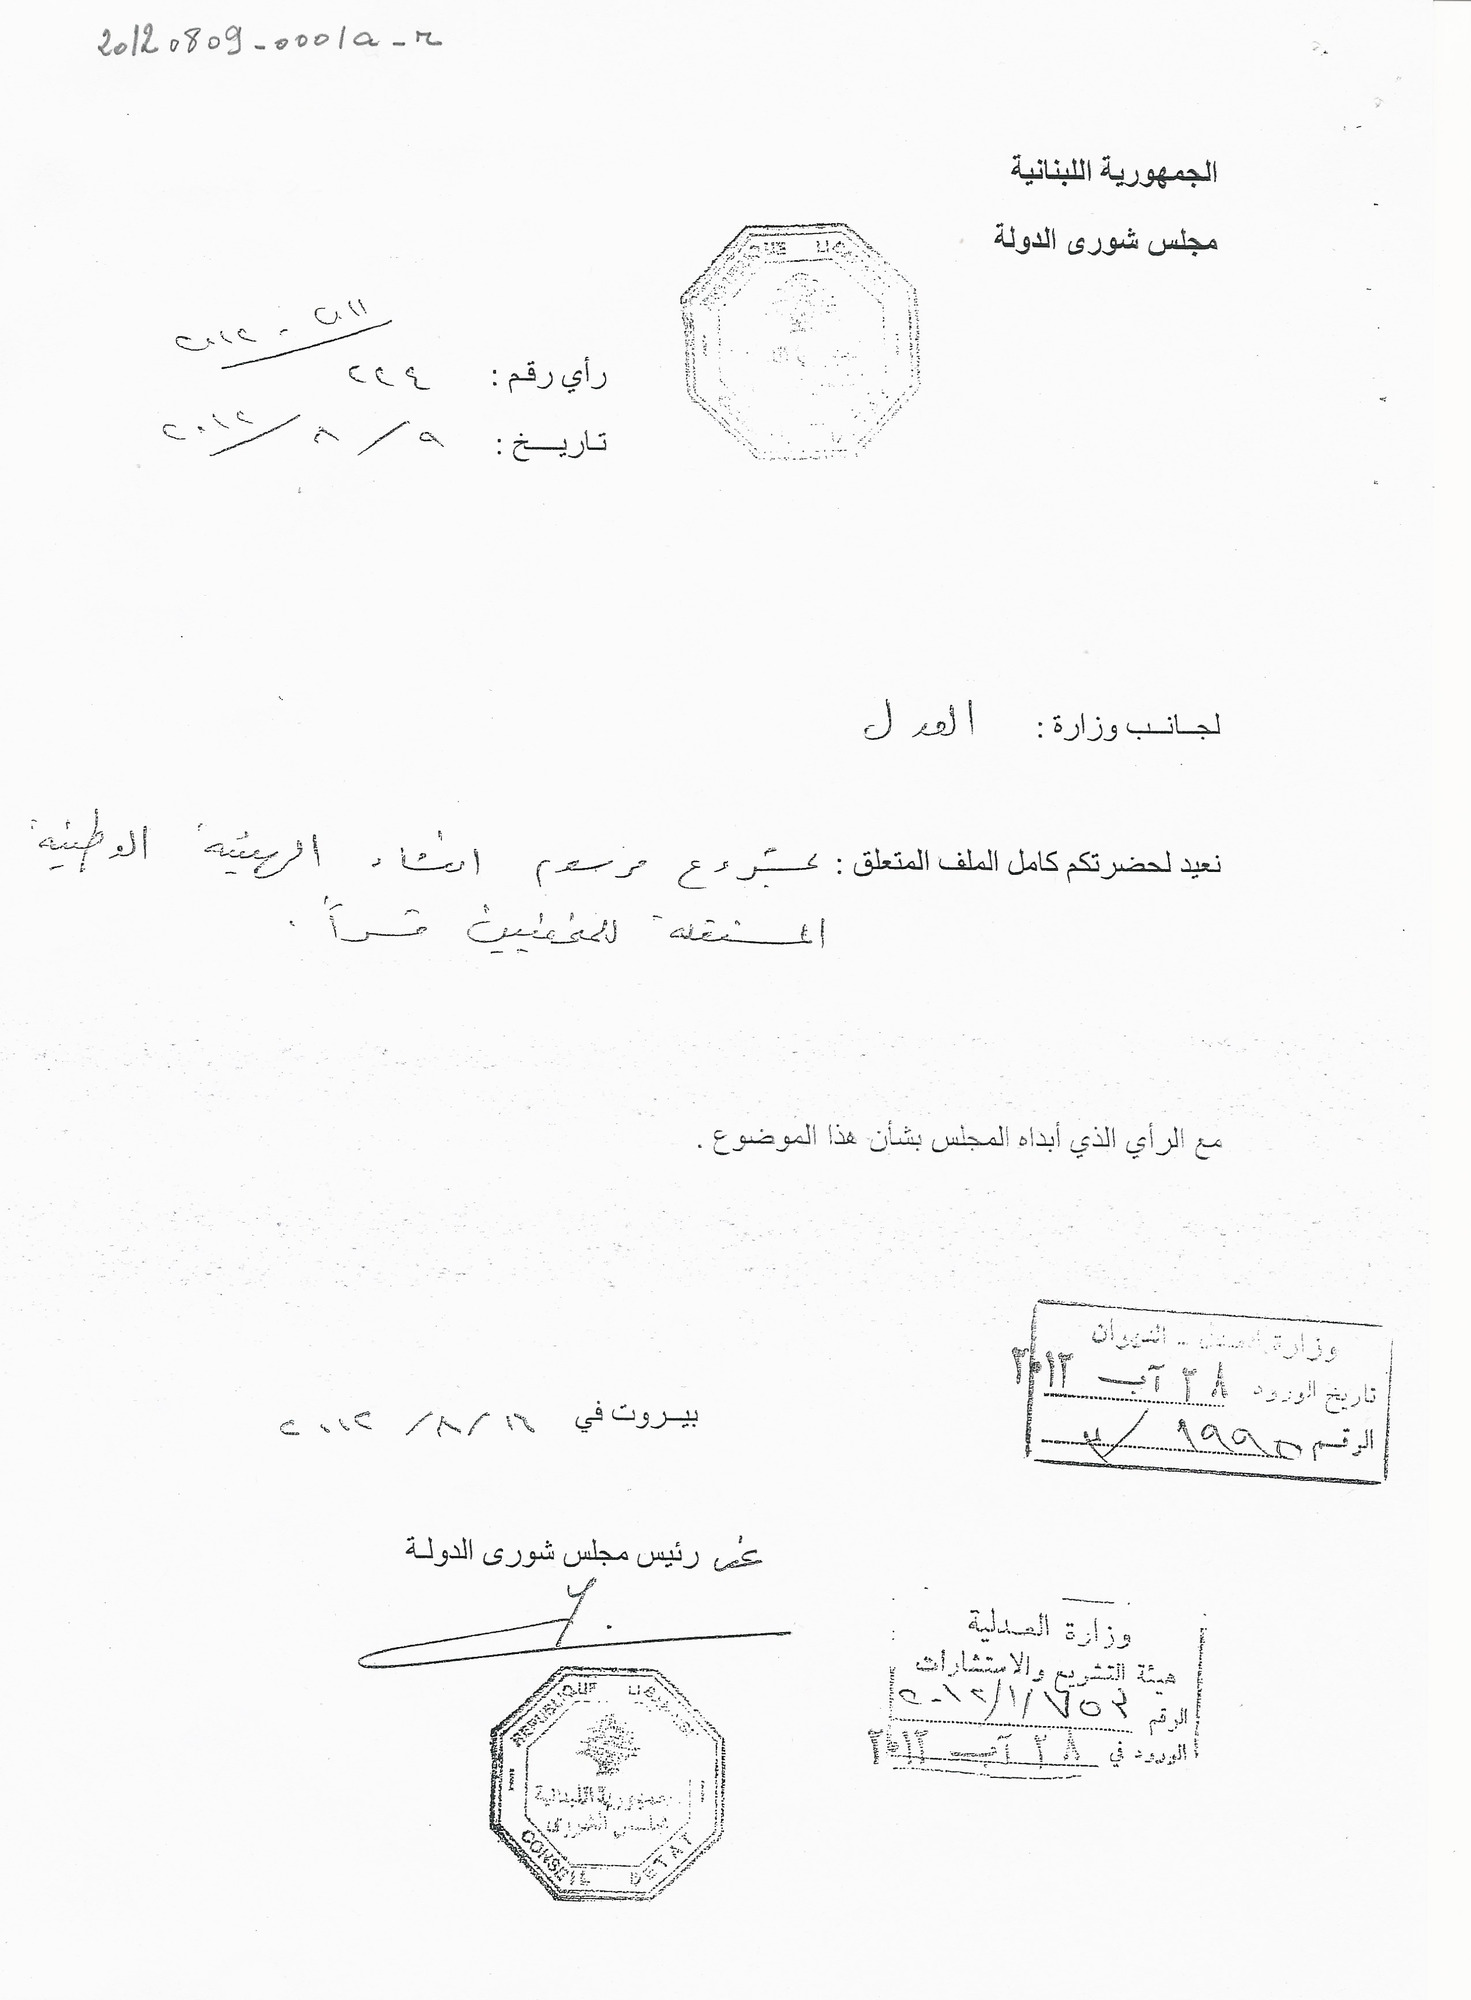 20120809-0001a-r
الجمهورية اللبنانية
مجلس شورى الدولة
٢٠١١ - ٢٠١٢
رأي رقم : ٢٢٤
تاريـــخ : ٩ / ٨ / ٢٠١٢
لجـانــب وزارة : العدل
نعيد لحضرتكم كامل الملف المتعلق : بمشروع مرسوم انشاء الهيئة الوطنية
المستقلة للمخفيين قسراً .
مع الرأي الذي أبداه المجلس بشأن هذا الموضوع .
وزارة العدل - الديوان
تاريخ الورود ٢٨ آب ٢٠١٢
الرقم
بيـروت في ١٦ / ٨ / ٢٠١٢
عن رئيس مجلس شورى الدولـة
وزارة العـدلية
هيئة التشريع والاستشارات
الرقم ٢٠١٢/١/٧٥٣
الورود في ٢٨ آب ٢٠١٢
REPUBLIQUE LIBANAISE
الجمهورية اللبنانية
مجلس الشورى
CONSEIL D'ETAT